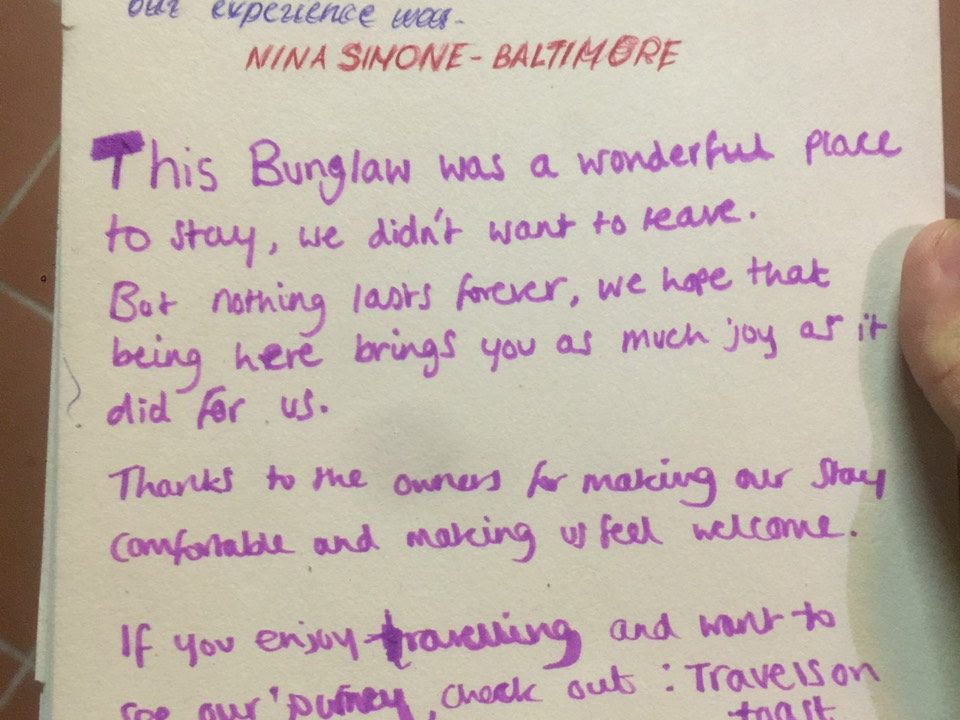 our experience was.
NINA SIMONE - BALTIMORE
This Bunglaw was a wonderful place
to stay, we didn't want to leave.
But nothing lasts forever, we hope that
being here brings you as much joy as it
did for us.
Thanks to the owners for making our stay
comfortable and making us feel welcome.
If you enjoy travelling and want to
see our journey, check out : Travels on
toast